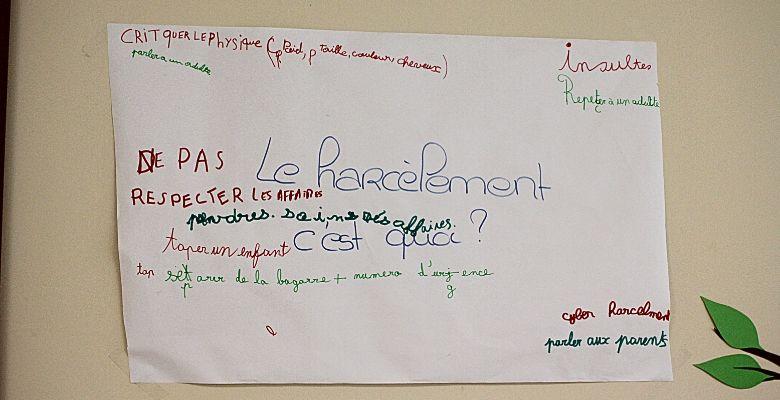 CRITQUER LE PHYSIQUE (Poid, taille, couleur, cheveux)
parler a un adulte
insultes
Repeter à un adulte
Le harcèlement
c'est quoi ?
NE PAS
RESPECTER LES AFFAIRES
prendres soin de ses affaires.
taper un enfant
tap separer de la bagarre + numero d'urgence
cyber Harcelment
parler aux parents